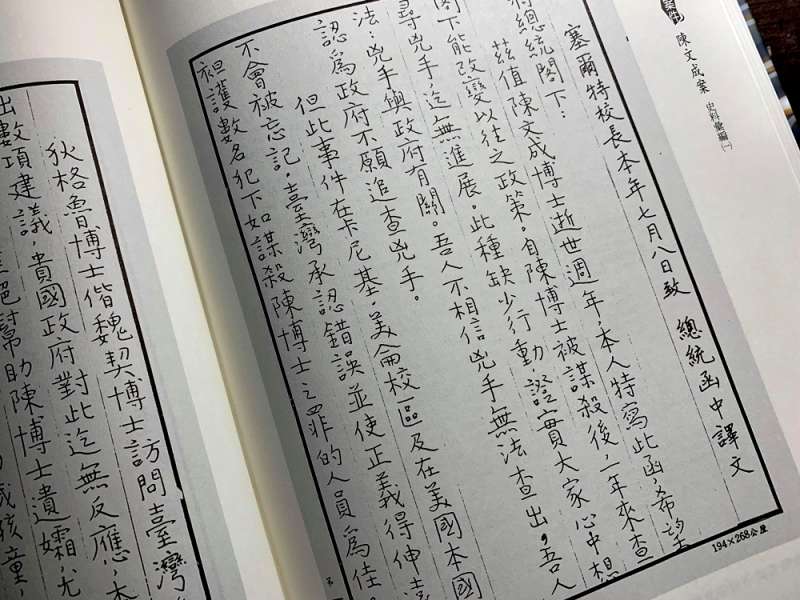 陳文成案 史料彙編(一)
塞爾特校長本年七月八日致 總統函中譯文
總統閣下:
茲值陳文成博士逝世週年,本人特寫此函,希望
閣下能改變以往之政策。自陳博士被謀殺後,一年來查
尋兇手,迄無進展。此種缺少行動證實大家心中想
法:兇手與政府有關。吾人不相信兇手無法查出,吾人
認為政府不願追查兇手。
但此事件在卡尼基·美侖校區及在美國本國
不會被忘記,臺灣承認錯誤並使正義得伸
袒護數名犯下如謀殺陳博士之罪的人員為佳。
194×268公厘
狄格魯博士偕魏契博士訪問臺灣
出數項建議,貴國政府對此迄無反應,本
絕幫助陳博士遺孀,尤
孩童,